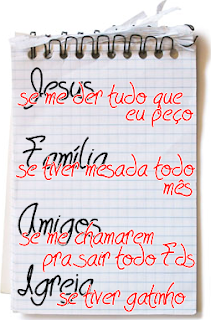 Jesus
se me der tudo que
eu peço
Família
se tiver mesada todo
mês
Amigos
se me chamarem
pra sair todo Fds
Igreja
se tiver gatinho